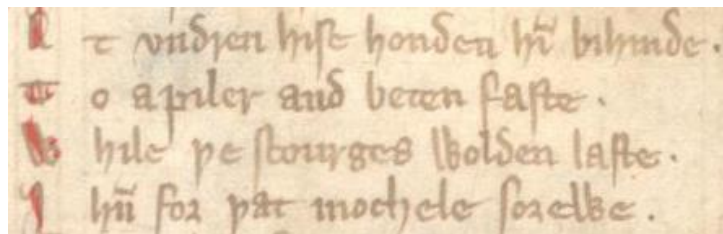 At vndren hiſe honden hī bihinde.
To a piler and beten faſte.
While þe ſcourges wolden laſte.
Ihū for þat mochele ſorewe.